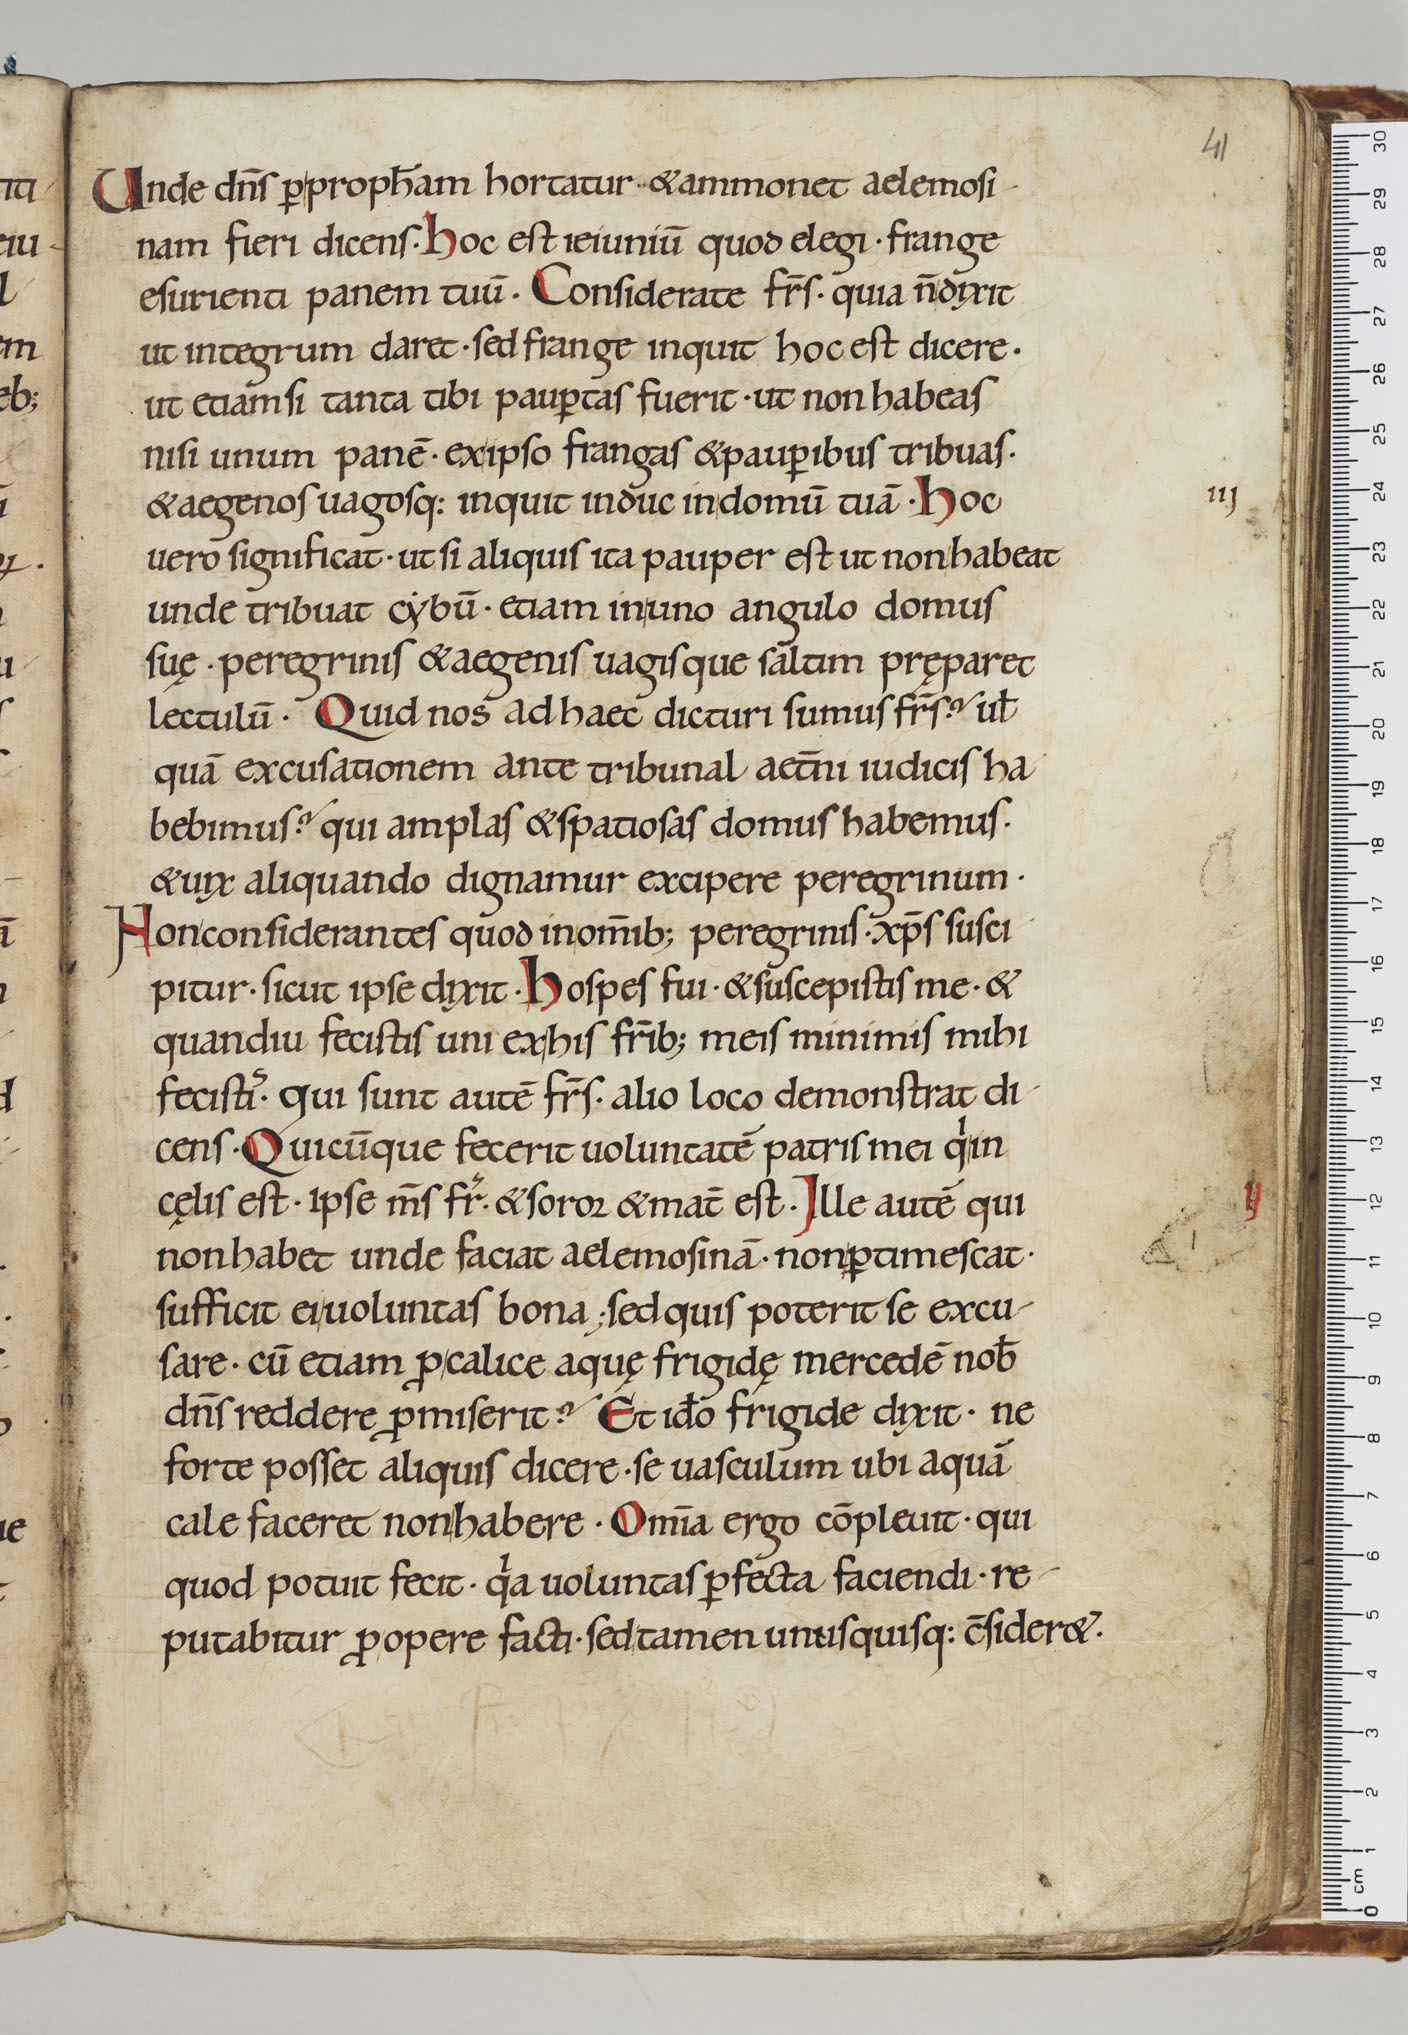 41
Unde dn̄s ꝑ proph̄am hortatur · & ammonet aelemosi-
nam fieri dicens · hoc est ieiuniū quod elegi · frange
esurienti panem tuū · Considerate fr̄s · quia n̄ dixit
ut integrum daret · sed frange inquit hoc est dicere ·
ut etiam si tanta tibi pauꝑtas fuerit · ut non habeas
nisi unum panē · ex ipso frangas & pauꝑibus tribuas ·
& aegenos uagosq: inquit induc in domū tuā · hoc
iij
uero significat · ut si aliquis ita pauper est ut non habeat
unde tribuat cẏbū · etiam in uno angulo domus
suę · peregrinis & aegenis uagisque saltim pręparet
lectulū · Quid nos ad haec dicturi sumus fr̄s? ul̄
quā excusationem ante tribunal aet̄ni iudicis ha
bebimus? qui amplas & spatiosas domus habemus ·
& uix aliquando dignamur excipere peregrinum ·
Non considerantes quod in om̄ib; peregrinis · xp̄s susci
pitur · sicut ipse dixit · hospes fui · & suscepistis me · &
quandiu fecistis uni ex his fr̄ib; meis minimis mihi
fecistiˢ · qui sunt autē fr̄s · alio loco demonstrat di-
cens · Quicūque fecerit uoluntatē patris mei qⁱ in
cęlis est · ipse m̄s fr̄ · & soror & mat̄ est · Ille autē qui
ij
non habet unde faciat aelemosinā · non ꝑtimescat ·
sufficit ei uoluntas bona ; sed quis poterit se excu-
sare · cū etiam ꝓ calice aquę frigidę mercedē nob̄
dn̄s reddere ꝓmiserit? Et id̄o frigide dixit · ne
forte posset aliquis dicere · se uasculum ubi aquā
cale faceret non habere · Om̄ia ergo cōpleuit · qui
quod potuit fecit · qⁱa uoluntas ꝑfecta faciendi · re-
putabitur ꝓ opere facti · sed tamen unusquisq: c̄sider& ·